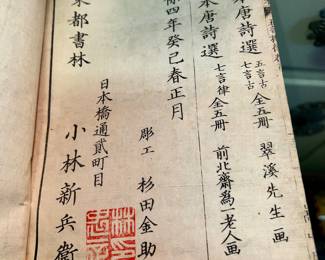 本唐詩選 五言古 七言古 全五冊 翠溪先生画
本唐詩選 七言律 全五冊 前北齋爲一老人画
四年癸巳春正月
彫工 杉田金助
日本橋通貳町目
東都書林 小林新兵衞